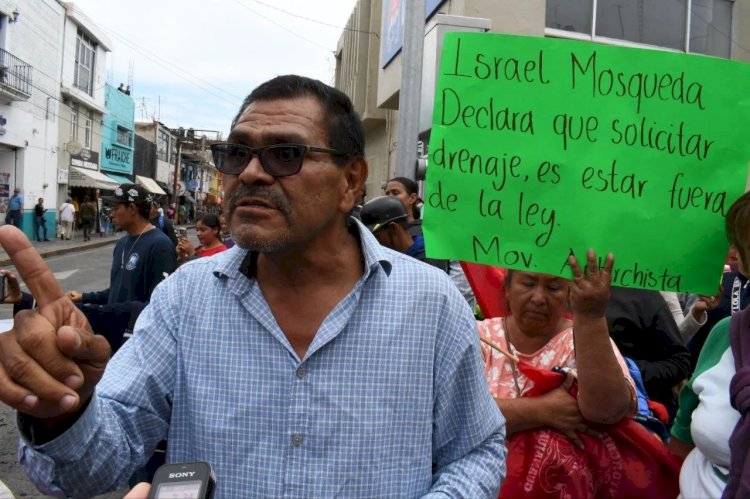 Israel Mosqueda
Declara que solicitar
drenaje, es estar fuera
de la ley.
Mov.
FRAICHE
SONY